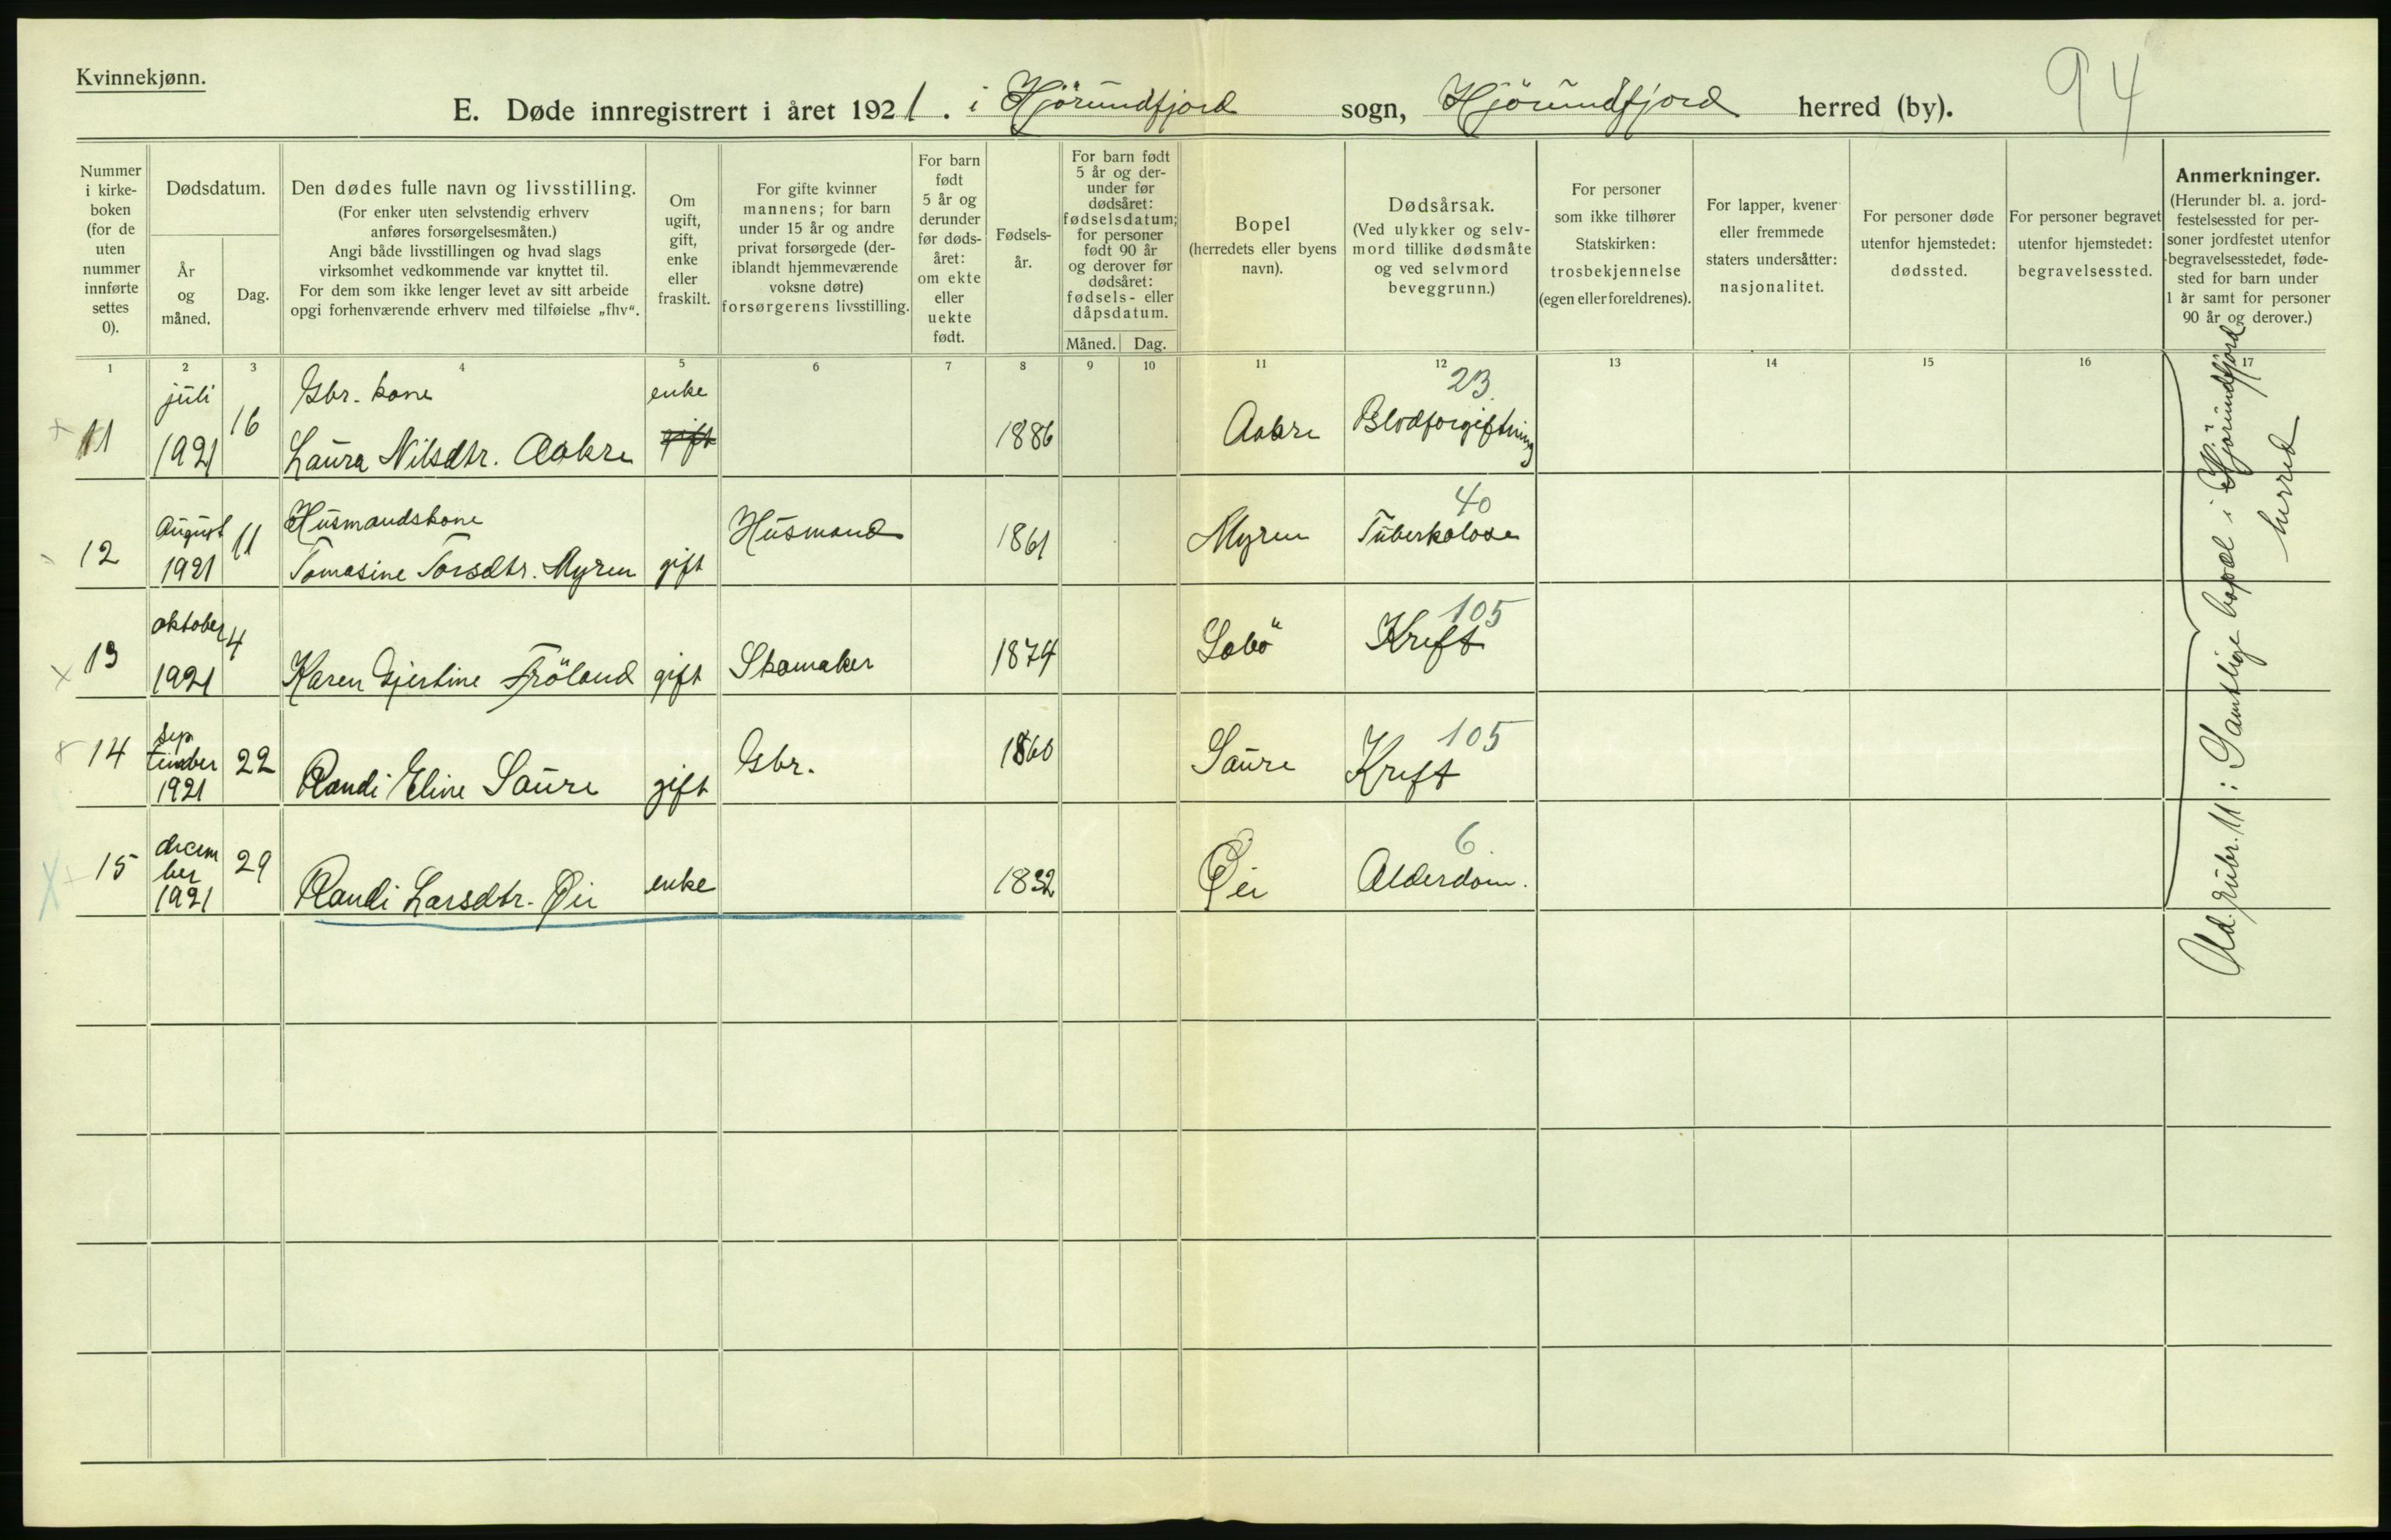 Kvinnekjønn.
94
E. Døde innregistrert i året 1921. i Hjörundfjord sogn, Hjörundfjord herred (by).
Nummer
i kirke-
boken
(for de
uten
nummer
innførte
settes
0).
Dødsdatum.
År
og
måned.
Dag.
Den dødes fulle navn og livsstilling.
(For enker uten selvstendig erhverv
anføres forsørgelsesmåten.)
Angi både livsstillingen og hvad slags
virksomhet vedkommende var knyttet til.
For dem som ikke lenger levet av sitt arbeide
opgi forhenværende erhverv med tilføielse „fhv“.
Om
ugift,
gift,
enke
eller
fraskilt.
For gifte kvinner
mannens; for barn
under 15 år og andre
privat forsørgede (der-
iblandt hjemmeværende
voksne døtre)
forsørgerens livsstilling.
For barn
født
5 år og
derunder
før døds-
året:
om ekte
eller
uekte
født.
Fødsels-
år.
For barn født
5 år og der-
under før
dødsåret:
fødselsdatum;
for personer
født 90 år
og derover før
dødsåret:
fødsels- eller
dåpsdatum.
Måned. Dag.
Bopel
(herredets eller byens
navn).
Dødsårsak.
(Ved ulykker og selv-
mord tillike dødsmåte
og ved selvmord
beveggrunn.)
For personer
som ikke tilhører
Statskirken:
trosbekjennelse
(egen eller foreldrenes).
For lapper, kvener
eller fremmede
staters undersåtter:
nasjonalitet.
For personer døde
utenfor hjemstedet:
dødssted.
For personer begravet
utenfor hjemstedet:
begravelsessted.
Anmerkninger.
(Herunder bl. a. jord-
festelsessted for per-
soner jordfestet utenfor
begravelsesstedet, føde-
sted for barn under
1 år samt for personer
90 år og derover.)
1 2 3 4 5 6 7 8 9 10 11 12 13 14 15 16 17
juli Gbr. kone enke 23
11 1921 16 Laura Nilsdtr. Aakre gift 1886 Aakre Blodforgiftning
August Husmandskone Husmand 40
12 1921 11 Tomasine Torsdtr. Myren gift 1861 Myren Tuberkolose
oktober 105
13 1921 4 Karen Gjertine Fröland gift Skomaker 1874 Sæbö Kreft
sep 105
14 tember 22 Randi Eline Saure gift Gbr. 1860 Saure Kreft
1921
decem 6
15 ber 29 Randi Larsdtr. Øie enke 1832 Øie Alderdom.
1921
Ad. rubr. 11: Samtlige bopæl i Hjörundfjord
herred